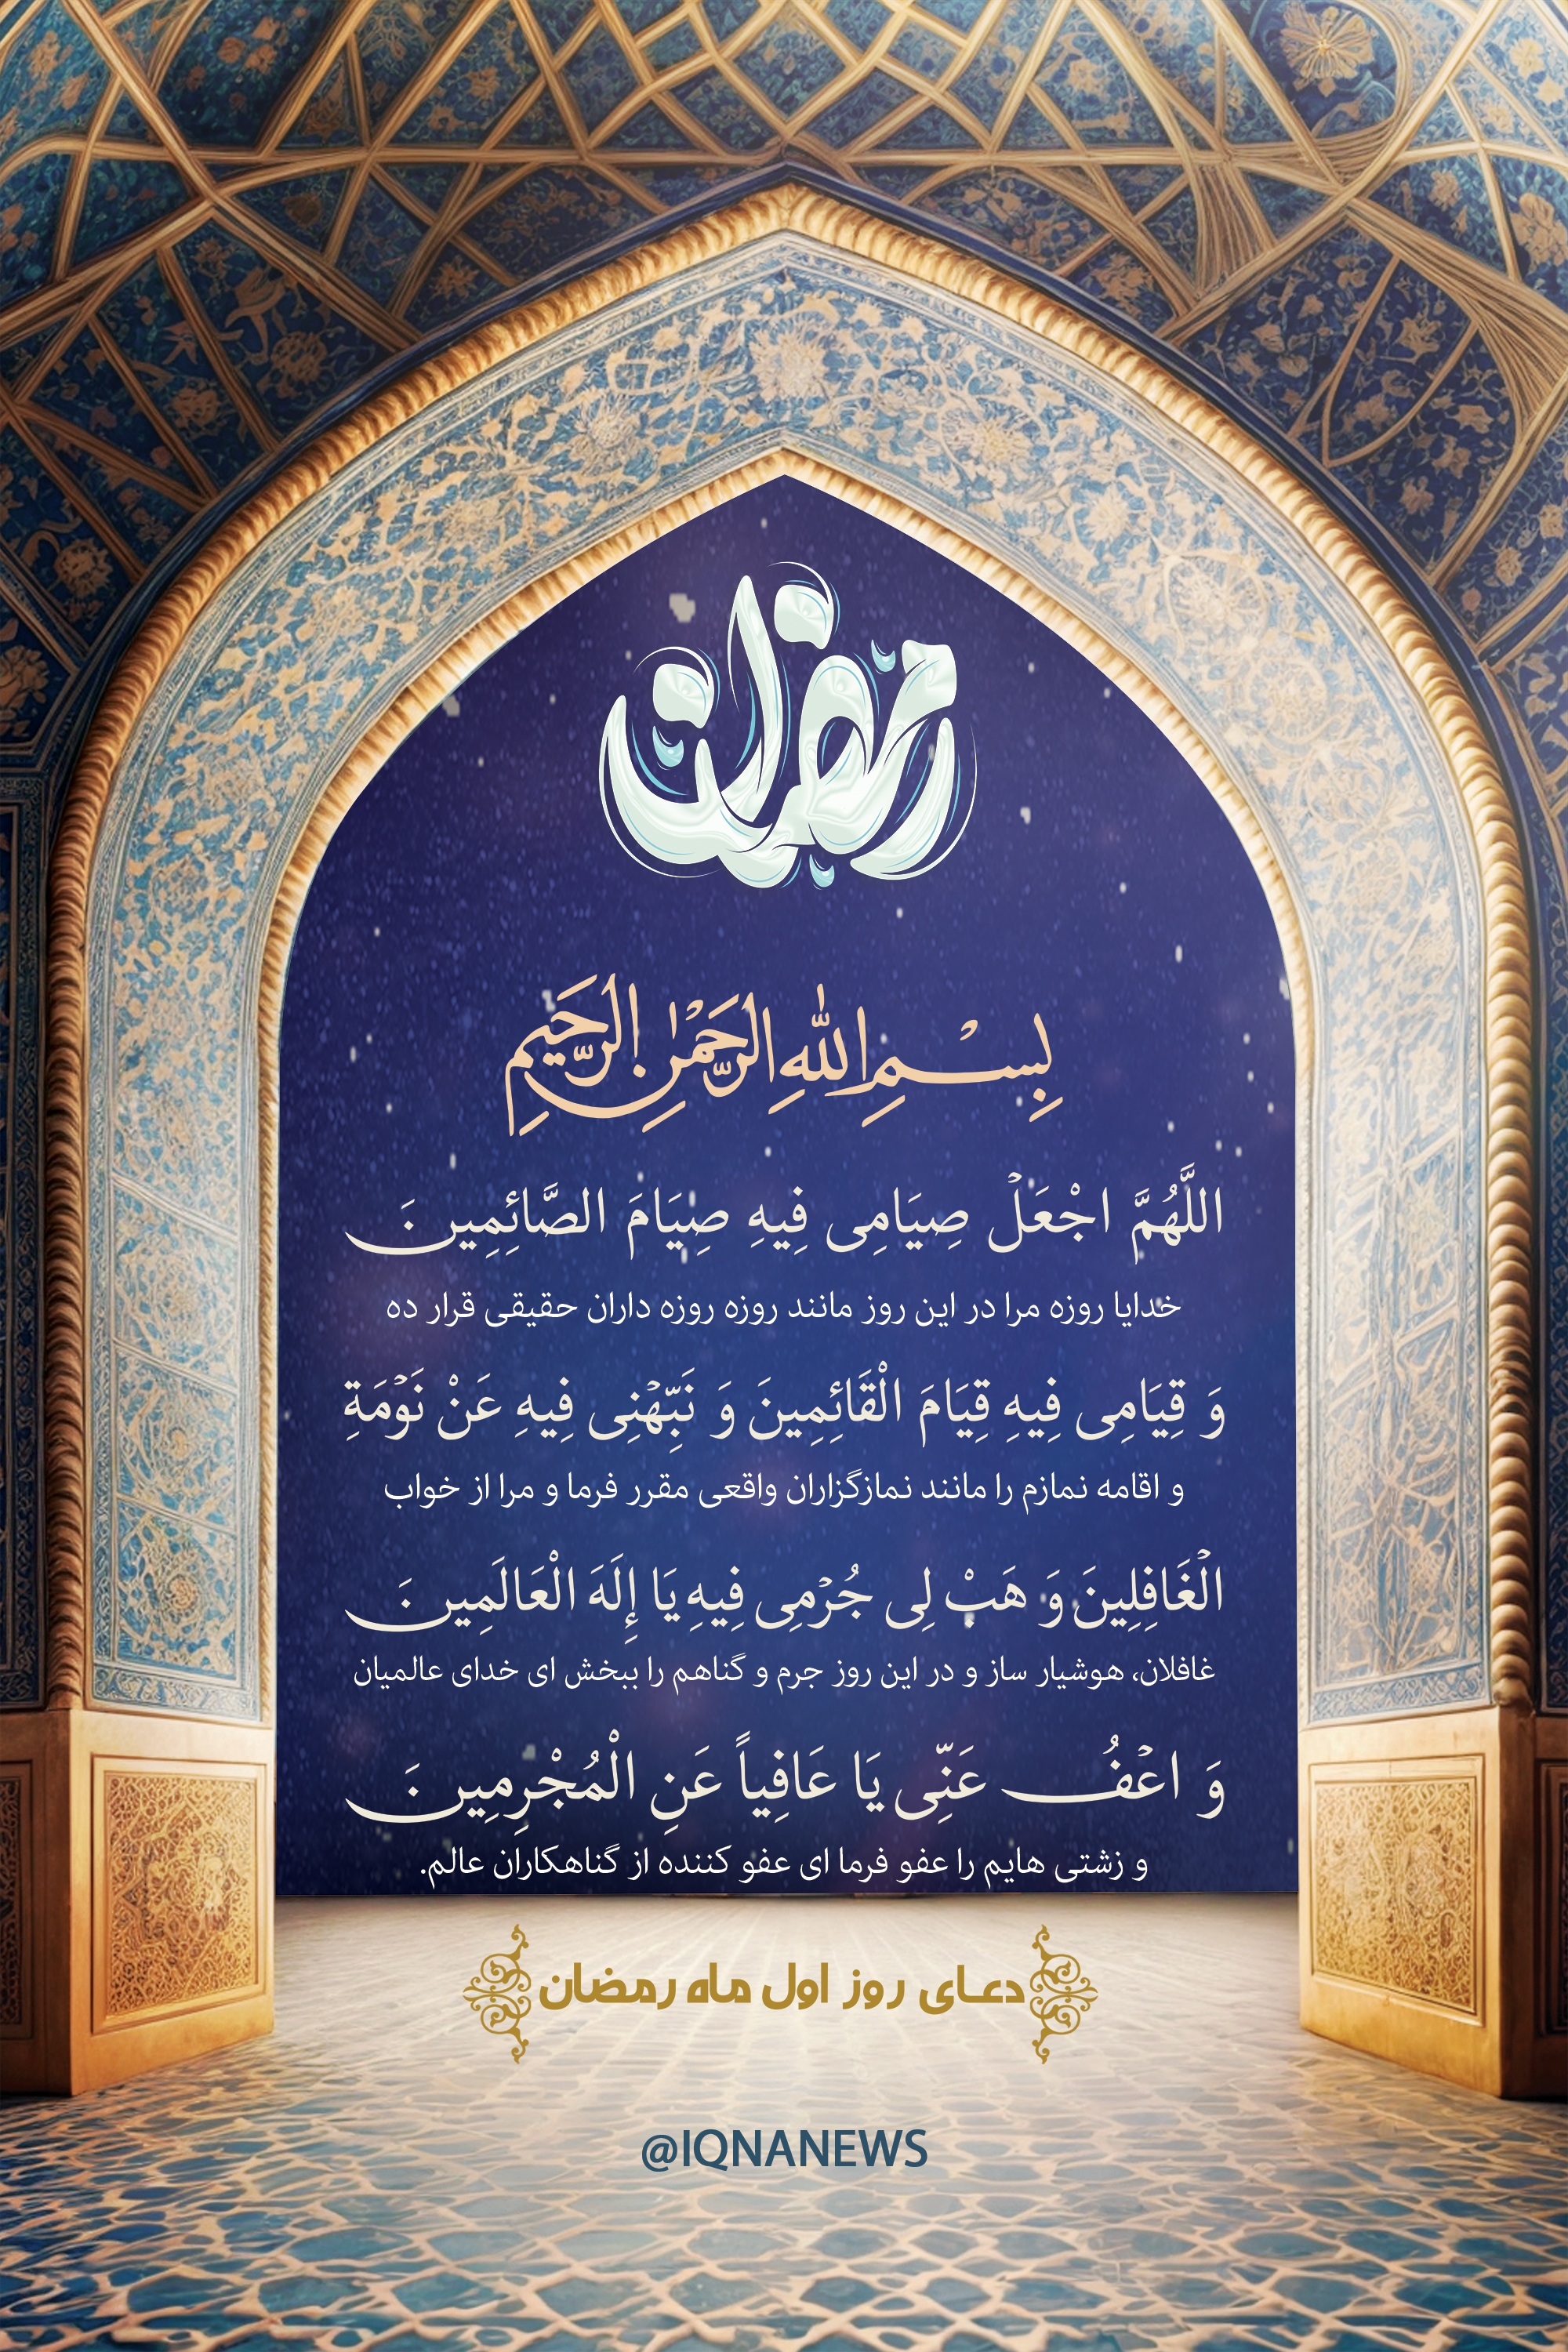 رمضان
بِسْمِ اللهِ الرَّحْمٰنِ الرَّحِيمِ
اللَّهُمَّ اجْعَلْ صِيَامِى فِيهِ صِيَامَ الصَّائِمِينَ
خدایا روزه مرا در این روز مانند روزه روزه داران حقیقی قرار ده
وَ قِيَامِى فِيهِ قِيَامَ الْقَائِمِينَ وَ نَبِّهْنِى فِيهِ عَنْ نَوْمَةِ
و اقامه نمازم را مانند نمازگزاران واقعی مقرر فرما و مرا از خواب
الْغَافِلِينَ وَ هَبْ لِى جُرْمِى فِيهِ يَا إِلَهَ الْعَالَمِينَ
غافلان، هوشیار ساز و در این روز جرم و گناهم را ببخش ای خدای عالمیان
وَ اعْفُ عَنِّى يَا عَافِياً عَنِ الْمُجْرِمِينَ
و زشتی هایم را عفو فرما ای عفو کننده از گناهکاران عالم.
دعای روز اول ماه رمضان
@IQNANEWS